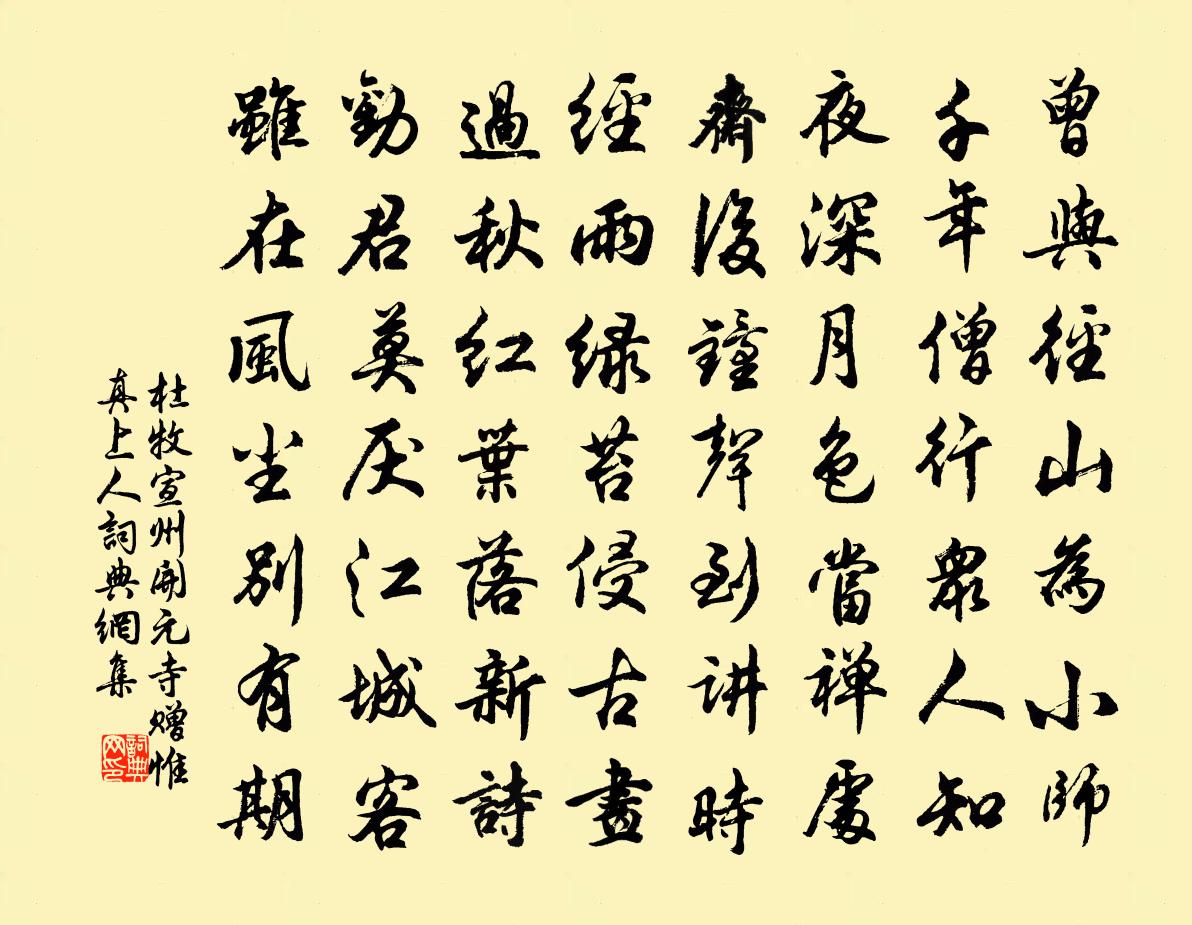 曾與徑山為小師
千年僧行眾人知
夜深月色當禅處
齋後鐘聲到讲時
經雨緑苔侵古畫
過秋紅葉落新詩
勸君莫厌江城客
雖在風尘別有期
杜牧宣州開元寺赠惟
真上人詞典網集
詞典
网印